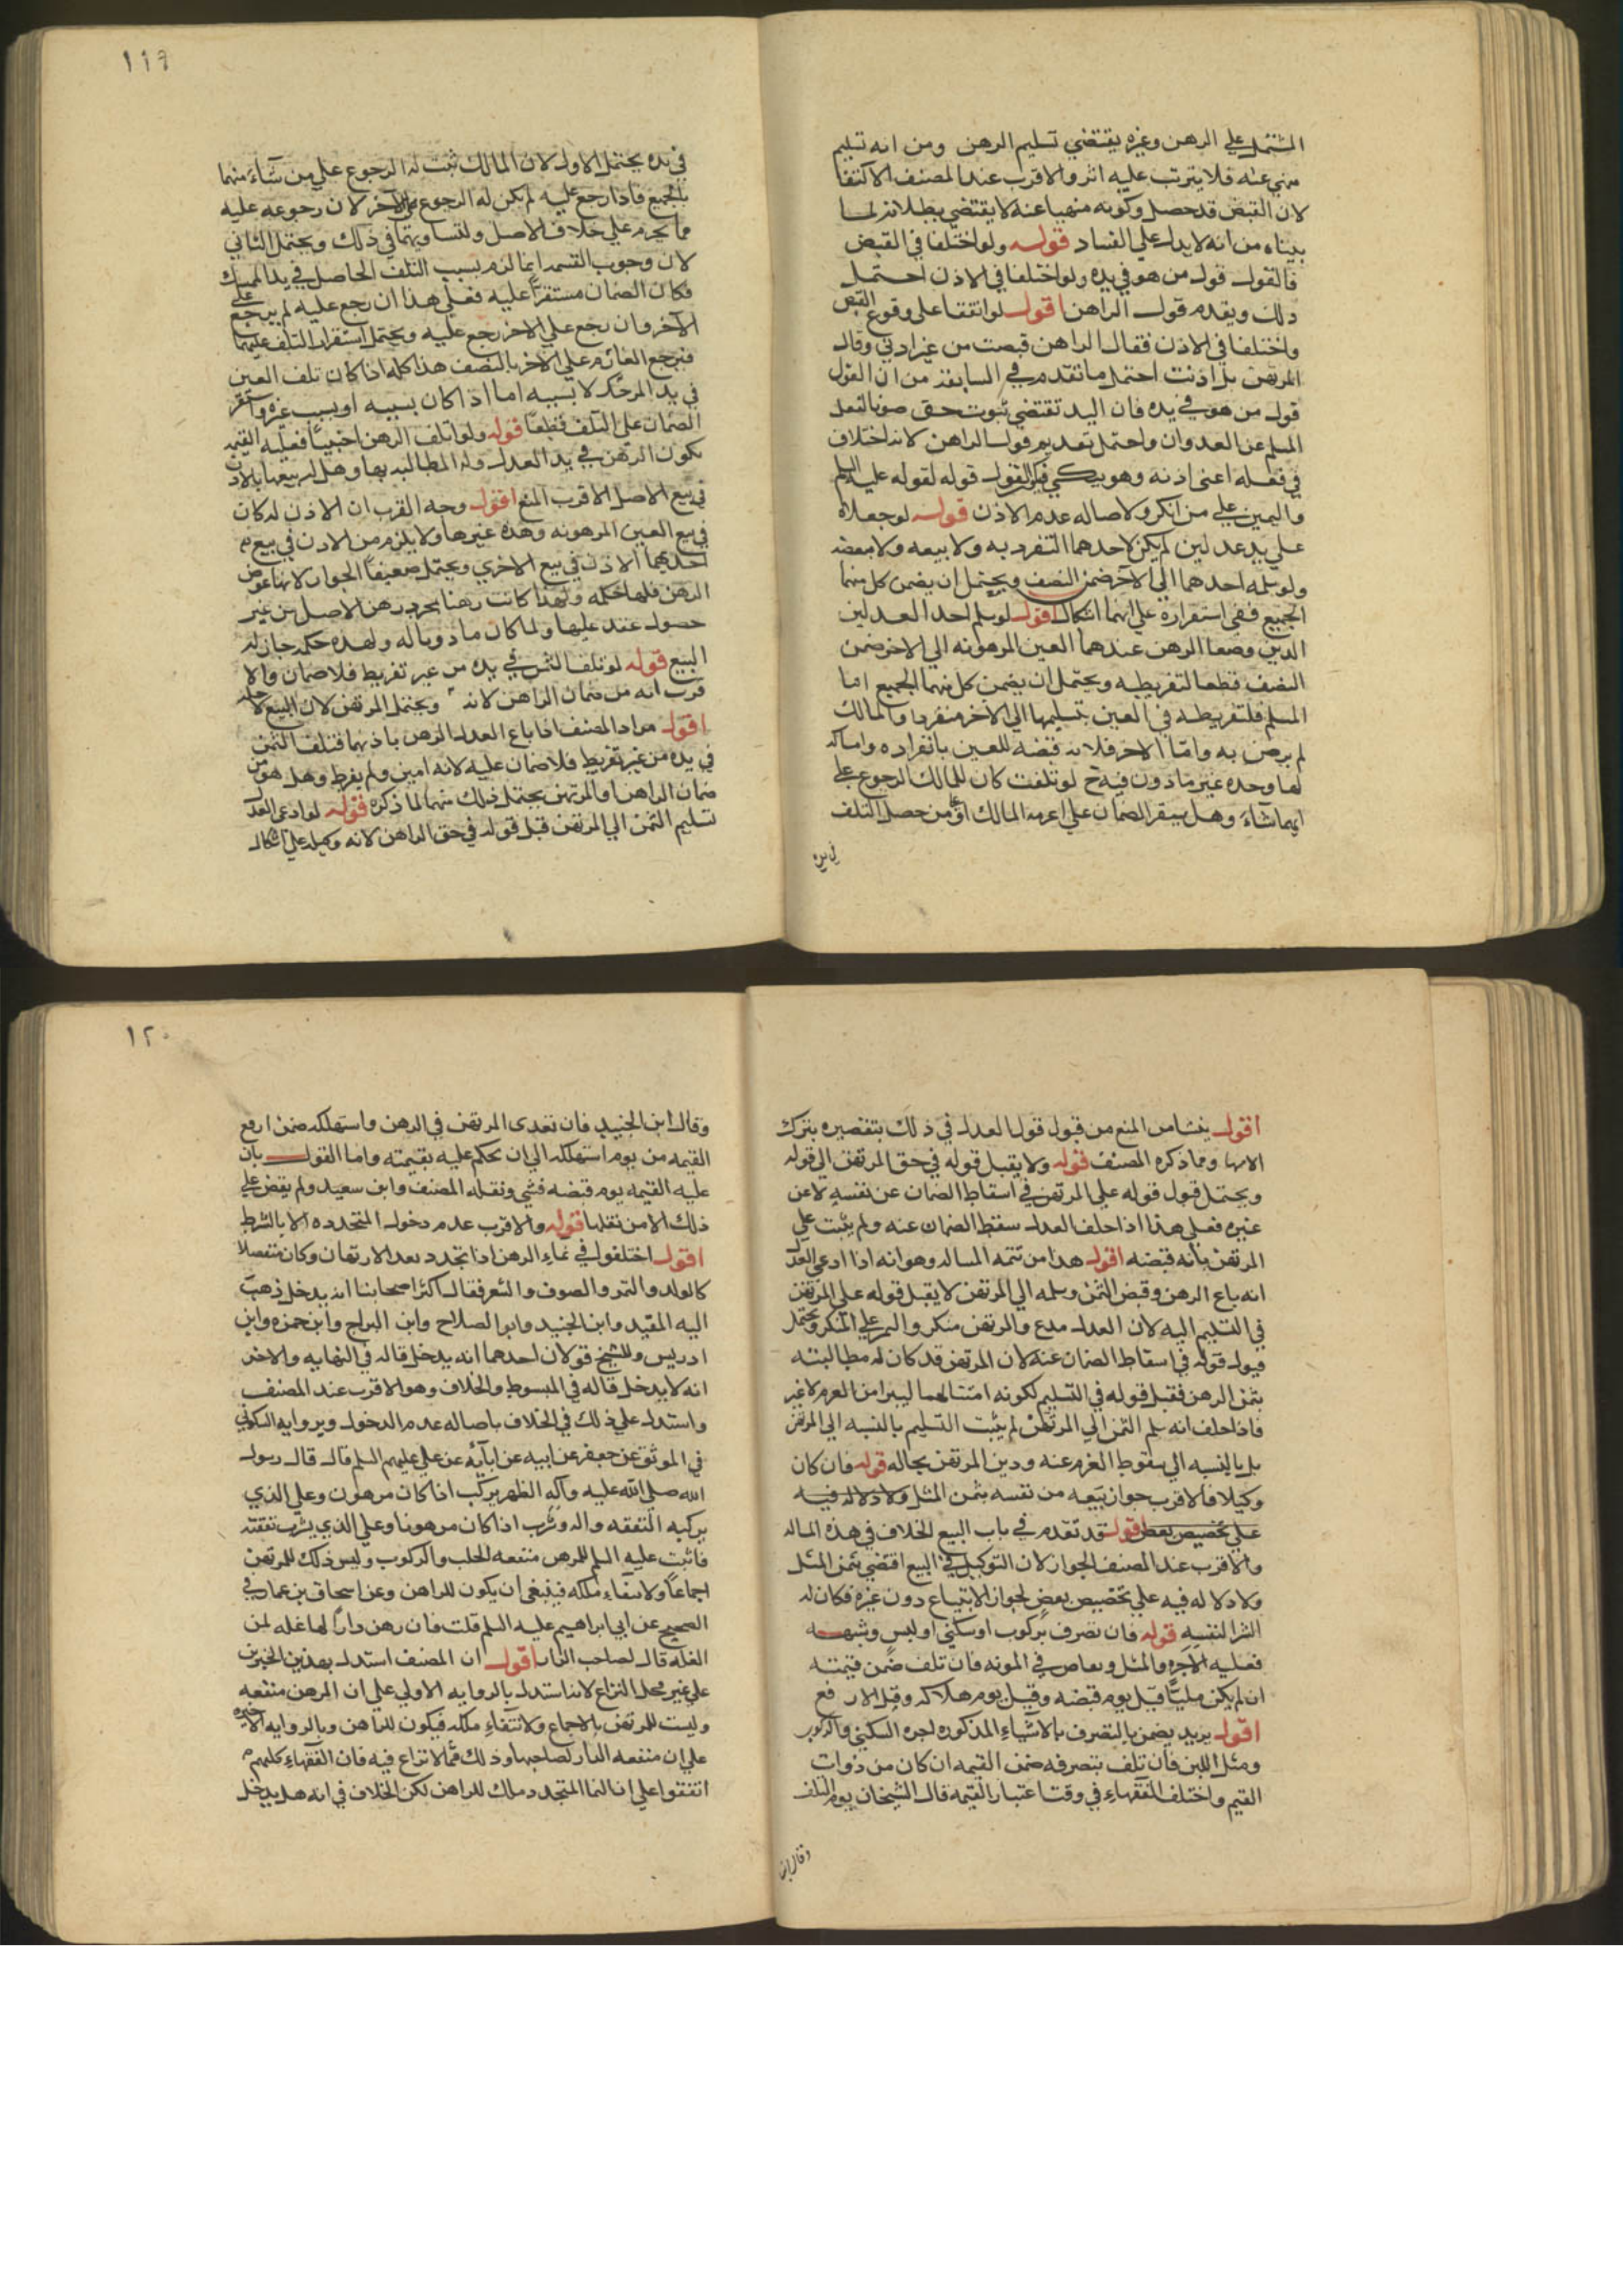 المشتمل على الرهن وغيره يقتضي تسليم الرهن ومن انه تسليم
منهي عنه فلا يترتب عليه اثر والاقرب عند المصنف الاكتفا
لان القبض قد حصل وكونه منهيا عنه لا يقتضي بطلانه لما
بيناه من انه لا يدل على الفساد قوله ولو اختلفا في القبض
فالقول قول من هو في يده ولو اختلفا في الاذن احتمل
ذلك ويقدم قول الراهن اقول لو اتفقا على وقوع القبض
واختلفا في الاذن فقال الراهن قبضت من غير اذني وقال
المرتهن بل اذنت احتمل ما تقدم في السابقه من ان القول
قول من هو في يده فان اليد تقتضي ثبوت حق صونا لفعل
المسلم عن العدوان واحتمل تقديم قول الراهن لانه اختلاف
في فعله اعني اذنه وهو ينكر فكان القول قوله لقوله عليه السلم
واليمين على من انكر ولاصاله عدم الاذن قوله لو جعلاه
على يد عدلين لم يكن لاحدهما التفرد به ولا ببيعه ولا ببعضه
ولو سلمه احدهما الى الاخر ضمن النصف ويحتمل ان يضمن كل منهما
الجميع ففي استقراره على ايهما اشكال اقول لو سلم احد العدلين
الذين وضعا الرهن عندهما العين المرهونه الى الاخر ضمن
النصف قطعا لتفريطه ويحتمل ان يضمن كل منهما الجميع اما
المسلم فلتفريطه في العين بتسليمها الى الاخر منفردا والمالك
لم يرض به واما الاخر فلانه قبضه للعين بانفراده وامساكه
لها وحده غير ماذون فيه ح لو تلفت كان للمالك الرجوع على
ايهما شاء وهل يستقر الضمان على اغرمه المالك او على من حصل التلف
في يده
١١٩
في يده يحتمل الاول لان المالك ثبت له الرجوع على من شاء منهما
بالجميع فاذا رجع عليه لم يكن له الرجوع على الاخر لان رجوعه عليه
مما يحرم على خلاف الاصل ولتساويهما في ذلك ويحتمل الثاني
لان وجوب القسمه انما لزم بسبب التلف الحاصل في يد الممسك
فكان الضمان مستقرا عليه فعلى هذا ان رجع عليه لم يرجع على
الاخر وان رجع على الاخر رجع عليه ويحتمل استقرار التلف عليهما
فيرجع الغارم على الاخر بالنصف هذا كله اذا كان تلف العين
في يد المرتكز لا بسببه اما اذا كان بسببه او بسبب غيره واستقر
الضمان على المتلف قطعا قوله ولو اتلف الرهن اجنبيا فعليه القيمه
تكون الرهن في يد العدل وله المطالبه بها وهل له بيعها بالاذن
في بيع الاصل الاقرب المنع اقول وجه القرب ان الاذن له كان
في بيع العين المرهونه وهذه غيرها ولا يلزم من الاذن في بيع
احدهما الاذن في بيع الاخرى ويحتمل ضعيفا الجواز لانها عوض
الرهن فلها حكمه ولهذا كانت رهنا بمجرد رهن الاصل من غير
حصول عقد عليها ولما كان ماذونا له ولهذه حكمه جاز له
البيع قوله لو تلف الثمن في يده من غير تفريط فلا ضمان والا
قرب انه من ضمان الراهن لانه ويحتمل المرتهن لان البيع لاجله
اقول مراد المصنف اذا باع العدل الرهن باذنهما فتلف الثمن
في يده من غير تفريط فلا ضمان عليه لانه امين ولم يفرط وهل هو من
ضمان الراهن او المرتهن يحتمل ذلك منهما لما ذكره قوله لو ادعى العدل
تسليم الثمن الى المرتهن قبل قوله في حق الراهن لانه وكيله على اشكال
اقول ينشا من المنع من قبول قول العدل في ذلك بتقصيره بترك
الاشهاد ومما ذكره المصنف قوله ولا يقبل قوله في حق المرتهن الى قوله
ويحتمل قبول قوله على المرتهن في اسقاط الضمان عن نفسه لا عن
غيره فعلى هذا اذا حلف العدل سقط الضمان عنه ولم يثبت على
المرتهن بانه قبضه اقول هذا من تتمه المساله وهو انه اذا ادعى العدل
انه باع الرهن وقبض الثمن وسلمه الى المرتهن لا يقبل قوله على المرتهن
في التسليم اليه لان العدل مدع والمرتهن منكر واليمين على المنكر ويحتمل
قبول قوله في اسقاط الضمان عنه لان المرتهن قد كان له مطالبته
بثمن الرهن فقبل قوله في التسليم لكونه امتثالهما ليبرا من الغرم لا غير
فاذا حلف انه سلم الثمن الى المرتهن لم يثبت التسليم بالنسبه الى المرتهن
بل بالنسبه الى سقوط الغرم عنه ودين المرتهن بحاله قوله فان كان
وكيلا فالاقرب جواز بيعه من نفسه بثمن المثل ولا دلاله فيه
على تخصيص بعض اقول قد تقدم في باب البيع الخلاف في هذه المساله
والاقرب عند المصنف الجواز لان التوكيل في البيع اقتضى بثمن المثل
ولا دلاله فيه على تخصيص بعض لجواز الابتياع دون غيره فكان له
الشرا لنفسه قوله فان تصرف بركوب او سكنى او لبس وشبهه
فعليه الاجره والمثل ويقاص في المونه فان تلف ضمن قيمته
ان لم يكن مليا قبل يوم قبضه وقيل يوم هلاكه وقيل الارفع
اقول يريد يضمن بالتصرف بالاشياء المذكوره اجره السكنى والركوب
ومثل اللبن فان تلف بتصرفه ضمن القيمه ان كان من ذوات
القيم واختلف الفقهاء في وقت اعتبار القيمه قال الشيخان يوم التلف
وقال ابن
١٢٠
وقال ابن الجنيد فان تعدى المرتهن في الرهن واستهلكه ضمن ارفع
القيمه من يوم استهلكه الى ان يحكم عليه بقيمته واما القول بان
عليه القيمه يوم قبضه فشي ونقله المصنف وابن سعيد ولم يقض على
ذلك الا من نقلها قوله والاقرب عدم دخول المتجدده الا بالشرط
اقول اختلفوا في نماء الرهن اذا تجدد بعد الارتهان وكان منفصلا
كالولد والثمر والصوف والشعر فقال اكثر اصحابنا انه يدخل ذهب
اليه المفيد وابن الجنيد وابو الصلاح وابن البراج وابن حمزه وابن
ادريس وللشيخ قولان احدهما انه يدخل قاله في النهايه والاخر
انه لا يدخل قاله في المبسوط والخلاف وهو الاقرب عند المصنف
واستدل على ذلك في الخلاف باصاله عدم الدخول وبروايه السكوني
في الموثق عن جعفر عن ابيه عن ابائه عن علي عليهم السلم قال قال رسول
الله صلى الله عليه وآله الظهر يركب اذا كان مرهون وعلى الذي
يركبه النفقه والدر يشرب اذا كان مرهونا وعلى الذي يشرب نفقته
فاثبت عليه السلم للمرهن منفعه الحلب والركوب وليس ذلك للمرتهن
اجماعا ولانتفاء ملكه فينبغي ان يكون للراهن وعن اسحاق بن عمار في
الصحيح عن ابي ابراهيم عليه السلم قلت فان رهن دارا لها غله لمن
الغله قال لصاحب الدار اقول ان المصنف استدل بهذين الخبرين
على غير محل النزاع لانه استدل بالروايه الاولى على ان المرهن منفعه
وليست للمرتهن بالاجماع ولانتفاء ملكه فيكون للراهن وبالروايه الاخيره
على ان منفعه الدار لصاحبها وذلك مما لا نزاع فيه فان الفقهاء كلهم
اتفقوا على ان النما المتجدد ملك للراهن لكن الخلاف في انه هل يدخل